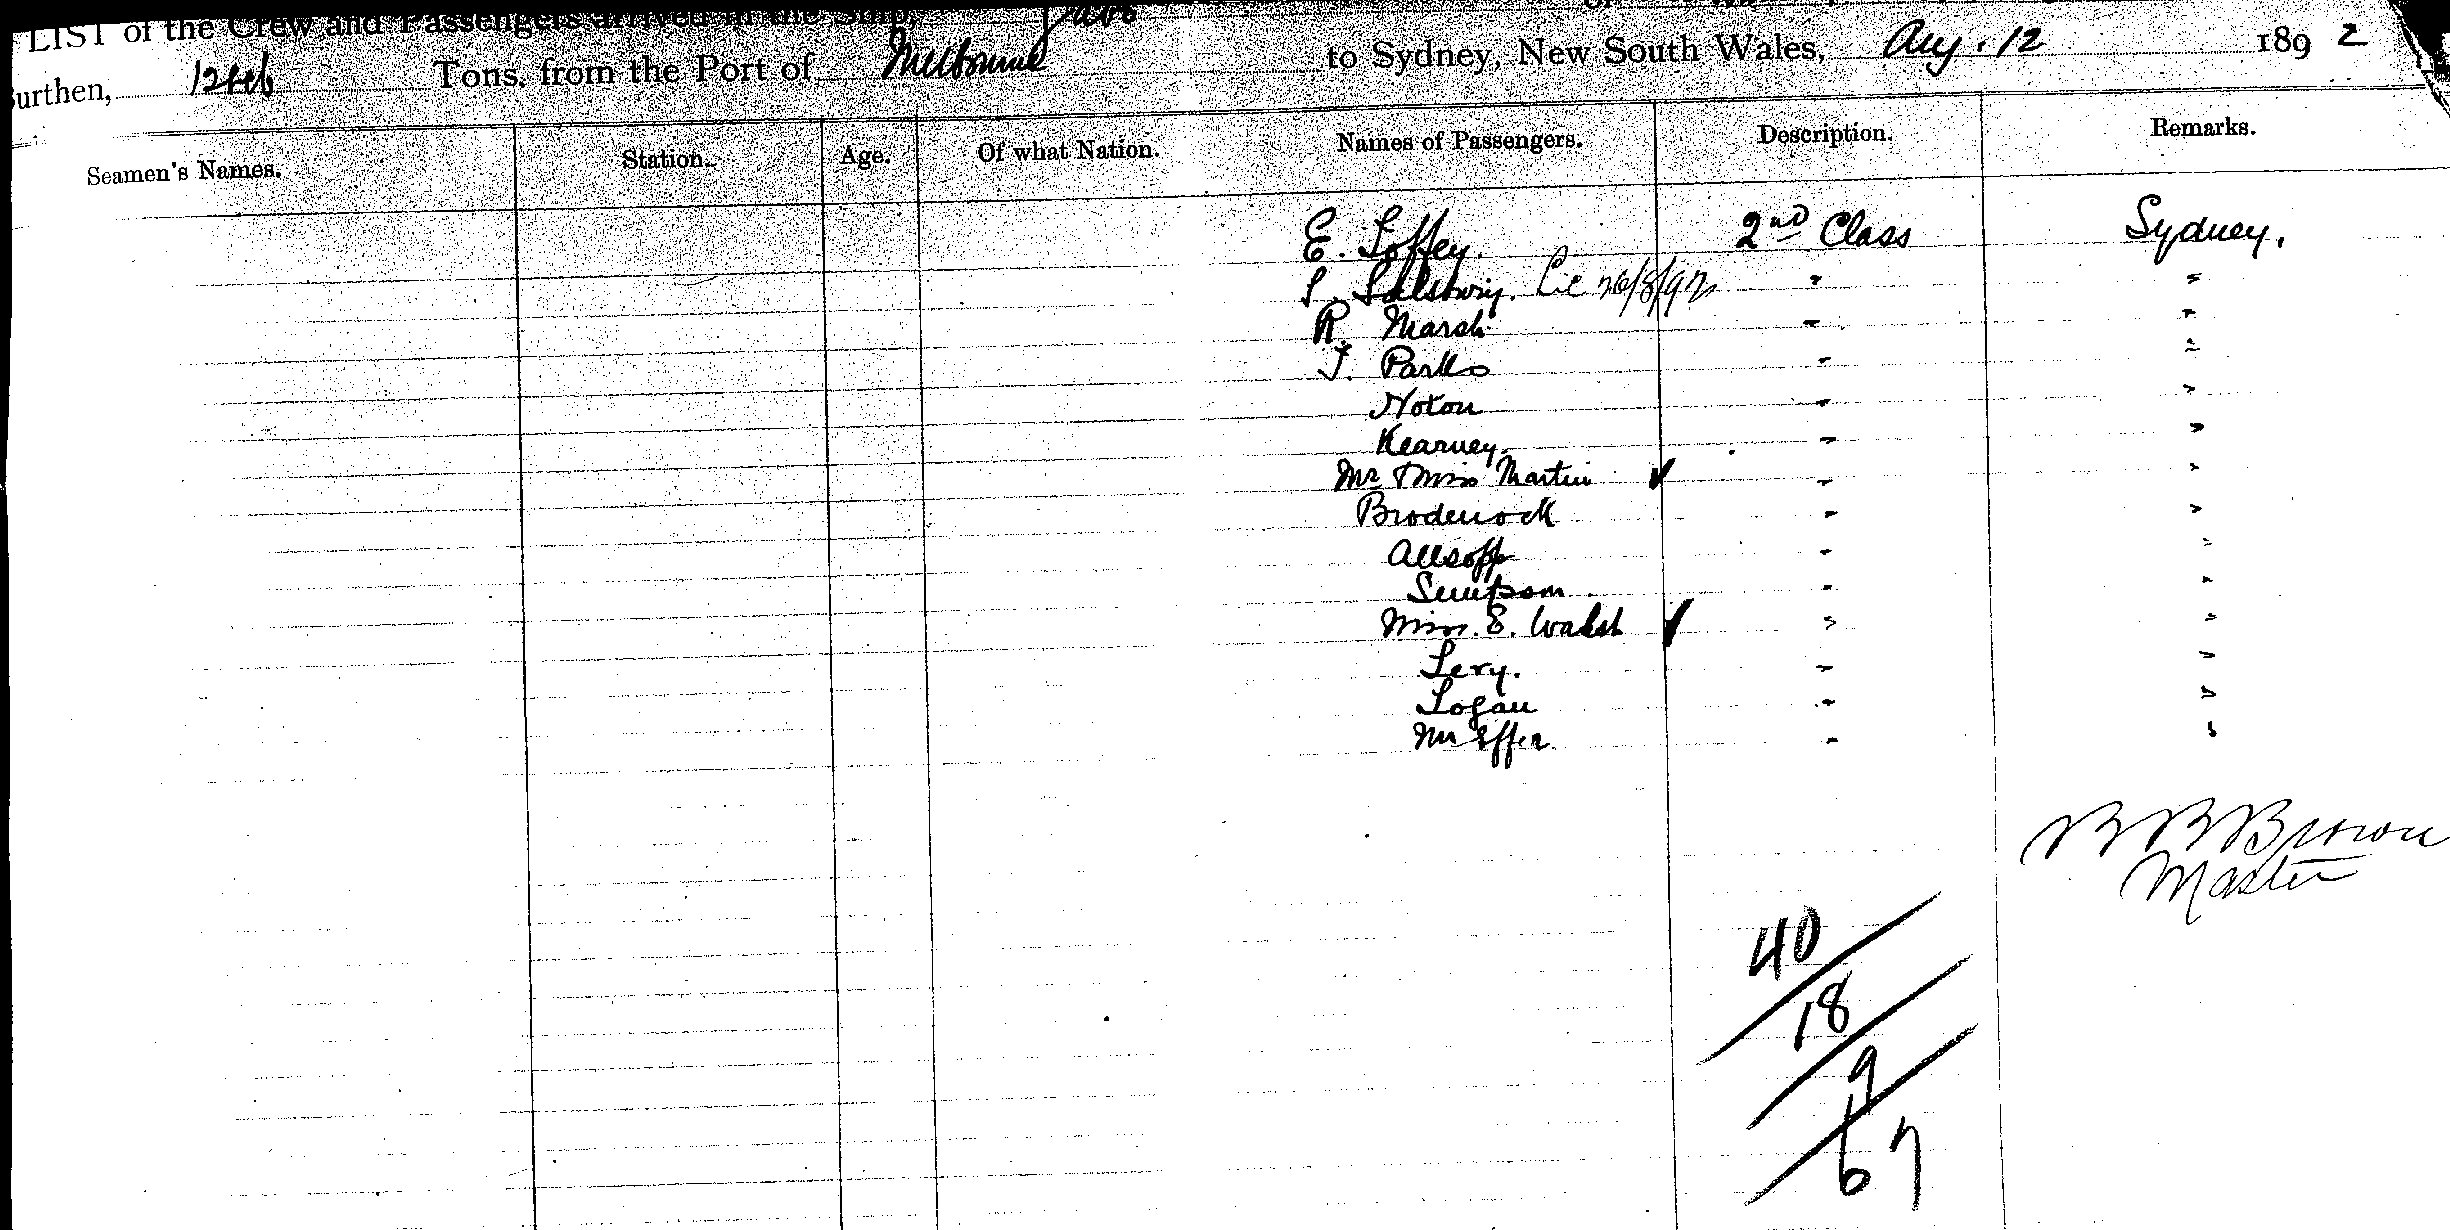 LIST of the Crew and Passengers arrived in the Ship,
Burthen, 1246 Tons. from the Port of Melbourne to Sydney, New South Wales, Aug. 12 1892
Seamen's Names. Station. Age. Of what Nation. Names of Passengers. Description. Remarks.
E. Loffey. 2nd Class Sydney.
S. Salsbury. 26/8/92 " "
R. Marsh " "
J. Parks " "
Noton " "
Kearney. " "
Mr & Miss Martin ✓ " "
Broderick " "
Allsopp " "
Simpson " "
Miss. E. Walsh ✓ " "
Levy. " "
Logan " "
Mr " "
Brown
Master
40
18
9
67